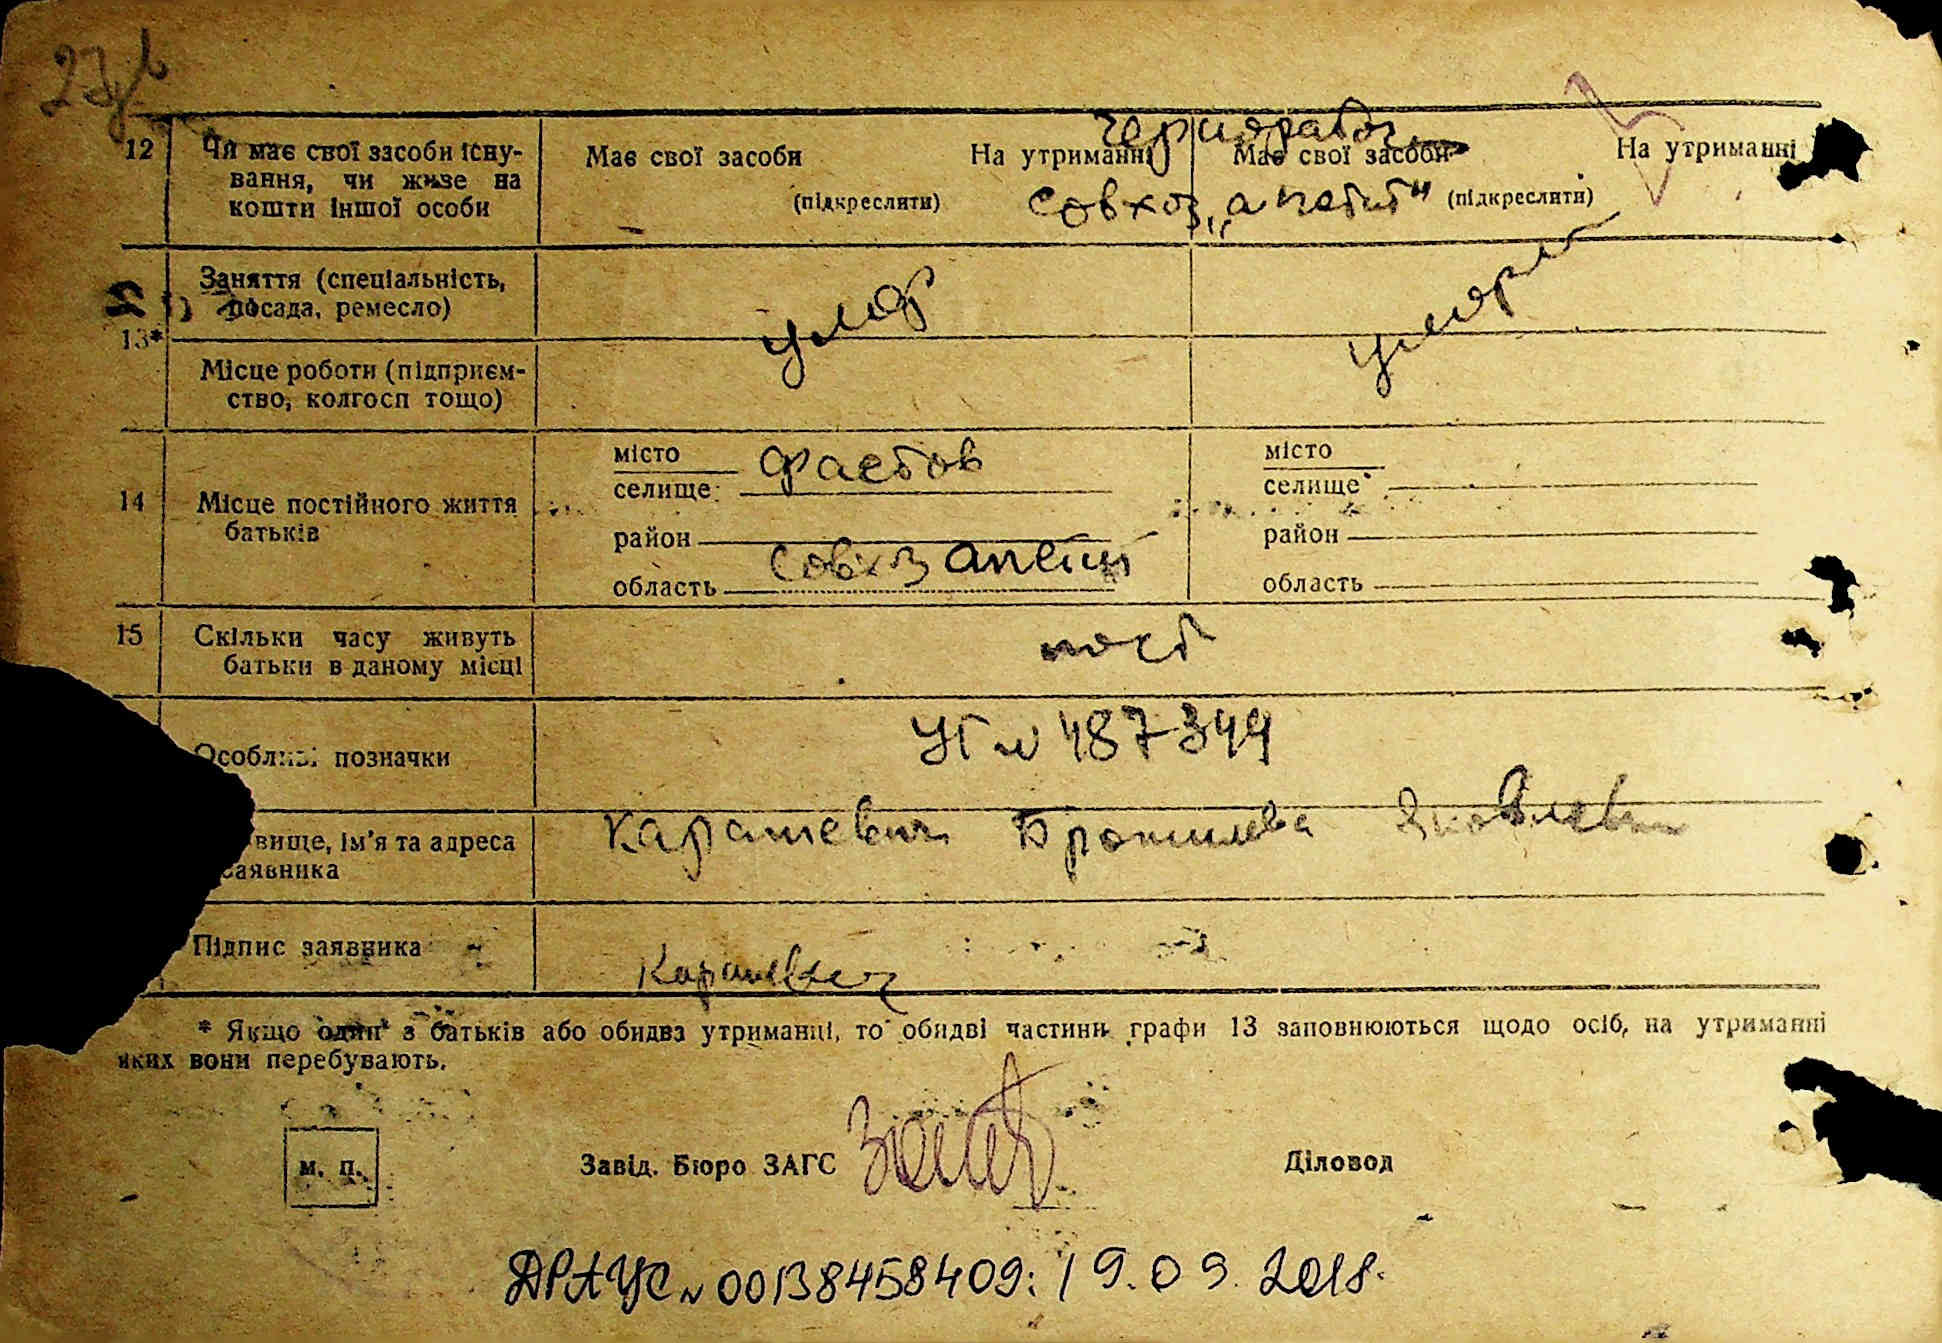 12 Чи має свої засоби існу-
вання, чи живе на
кошти іншої особи
Має свої засоби На утриманні
(підкреслити)
Чернораб
совхоз „апетит"
Має свої засоби На утриманні
(підкреслити)
13*
Заняття (спеціальність,
посада, ремесло)
Місце роботи (підприєм-
ство, колгосп тощо)
умер
14 Місце постійного життя
батьків
місто Фастов
селище
район
область совхоз апетит
місто
селище
район
область
15 Скільки часу живуть
батьки в даному місці
пост
Особливі позначки
УГ № 487344
вище, ім'я та адреса
заявника
Карашевич Бронислава Яковлевна
Підпис заявника
Карашевич
* Якщо один з батьків або обидва утриманні, то обидві частини графи 13 заповнюються щодо осіб, на утриманні
яких вони перебувають.
м. п.
Завід. Бюро ЗАГС
Діловод
ДРАЦС № 00138458409: 19.09.2018.